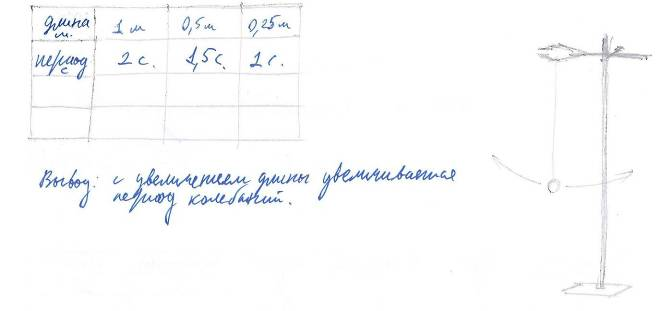 длина м. 1 м 0,5 м 0,25 м
период с 2 с. 1,5 с. 1 с.
Вывод: с увеличением длины увеличивается
период колебаний.